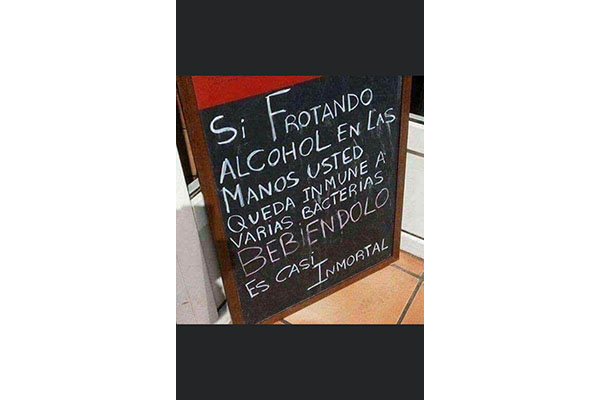 Si FROTANDO
ALCOHOL EN LAS
MANOS USTED
QUEDA INMUNE A
VARIAS BACTERIAS
BEBIÉNDOLO
ES CASI INMORTAL